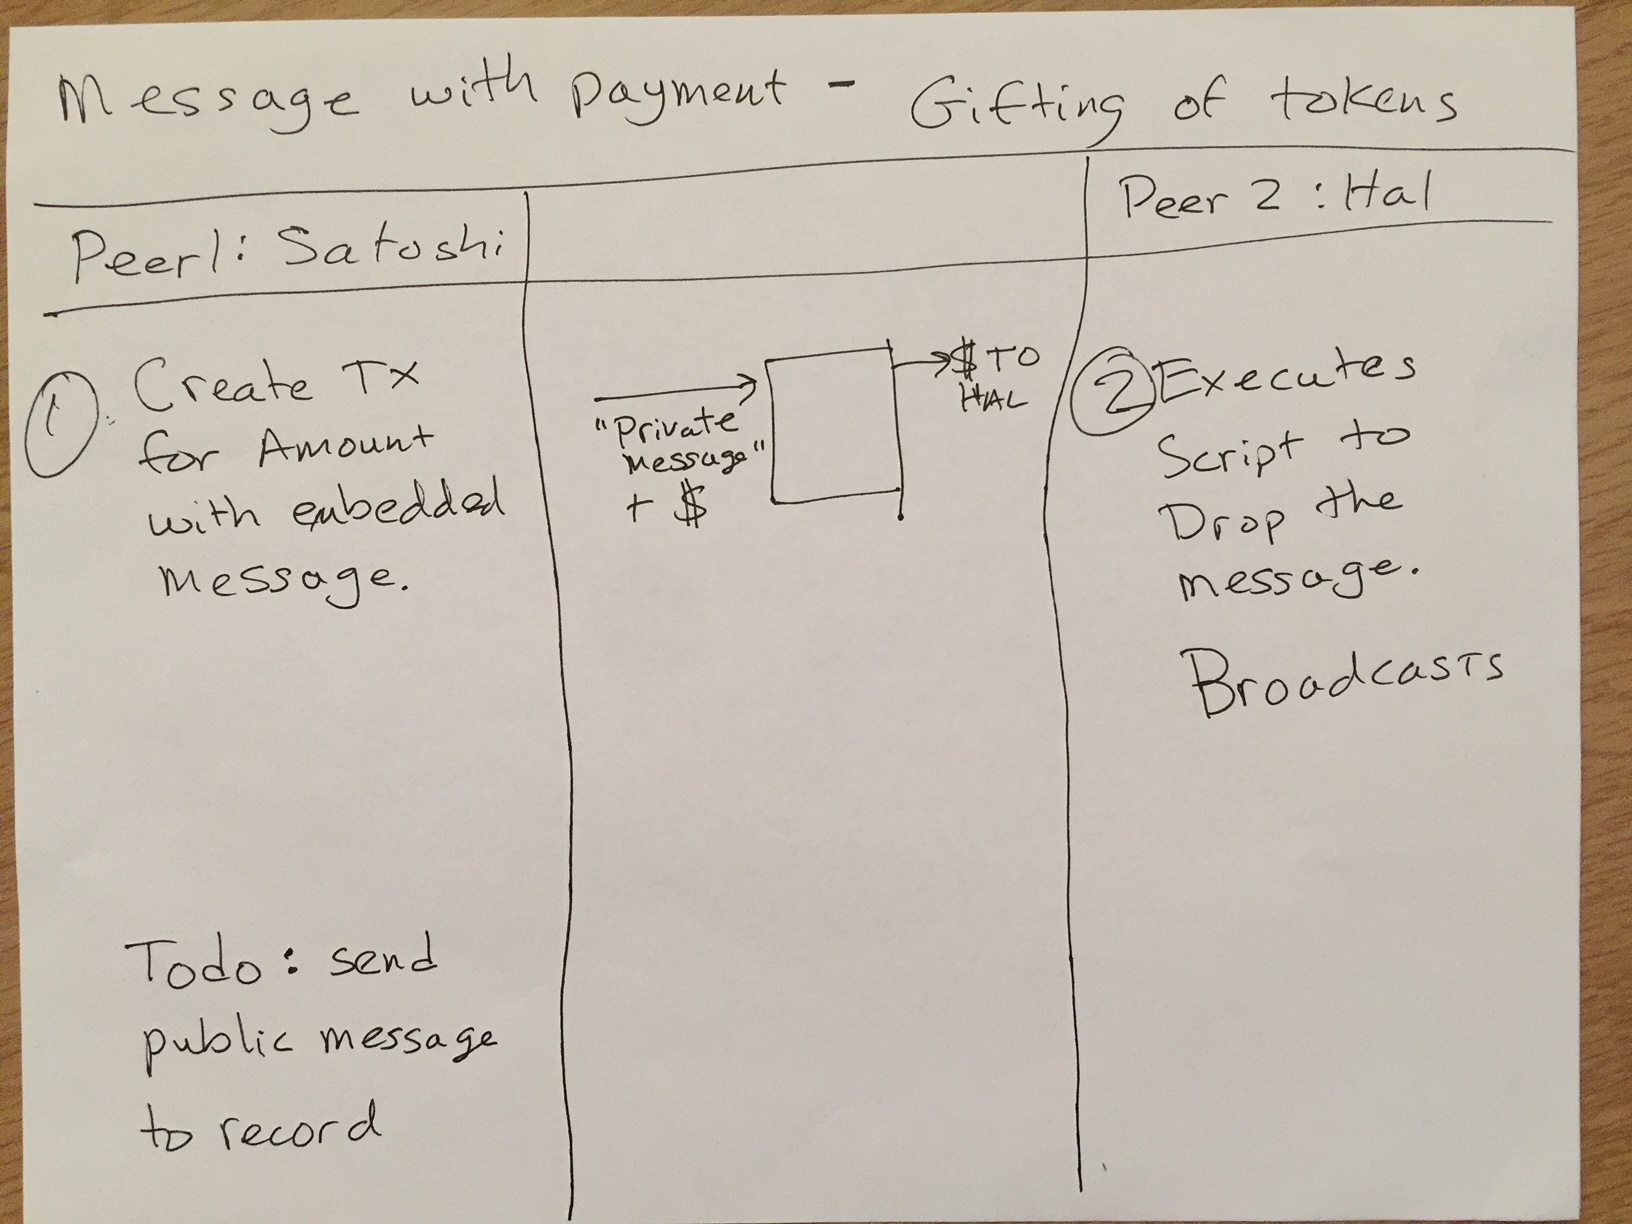 Message with payment - Gifting of tokens
Peer 1: Satoshi
Peer 2: Hal
1
Create Tx
for Amount
with embedded
message.
Todo: send
public message
to record
"private
message"
+ $
$ TO
HAL
2
Executes
Script to
Drop the
message.
Broadcasts